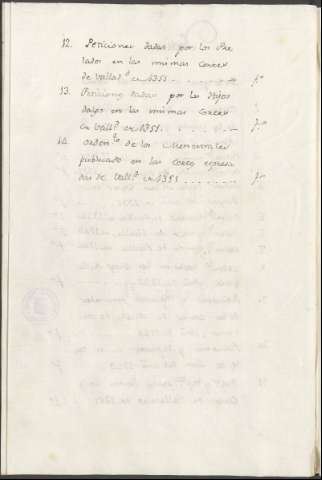 12. Peticiones dadas por los Pre
lados en las mismas Cortes
de Vallad.^d en 1351. . . . . . . f.^o
13. Peticiones dadas por los Hijos
dalgo en las mismas Cortes
en Vall.^d en 1351. . . . . . . f.^o
14. Orden.^to de los Menestrales
publicado en las Cortes expresa
das de Vall.^d en 1351 . . . . . . . f.^o